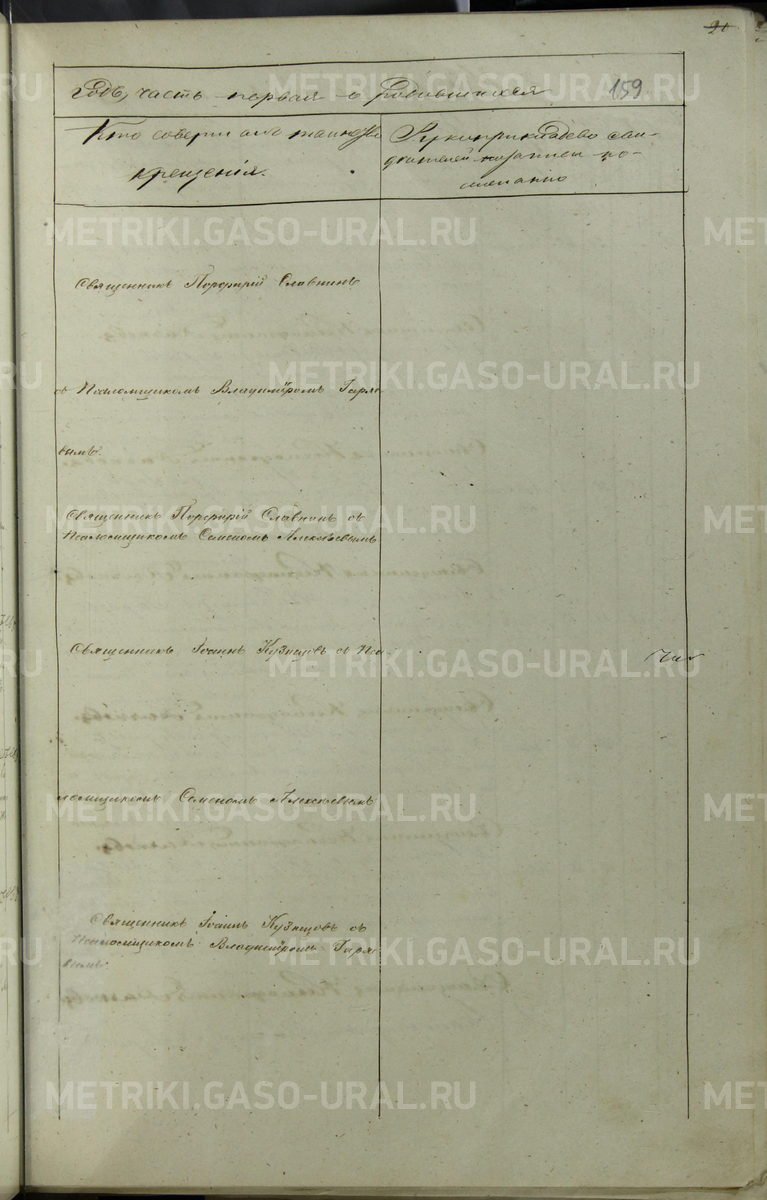 21
годъ, часть первая о родившихся 159
Кто совершалъ таинство
крещенія.
Рукоприкладство сви-
дѣтелей записи по
желанію
Священникъ Порфирій Славнинъ
съ Псаломщикомъ Владиміромъ Гаря-
вымъ.
Священникъ Порфирій Славнинъ съ
Псаломщикомъ Семеномъ Алексѣевымъ
Священникъ Іоаннъ Кузнецовъ съ Пса-
ломщикомъ Семеномъ Алексѣевымъ
Священникъ Іоаннъ Кузнецовъ съ
Псаломщикомъ Владиміромъ Гаря-
вымъ.
METRIKI.GASO-URAL.RU